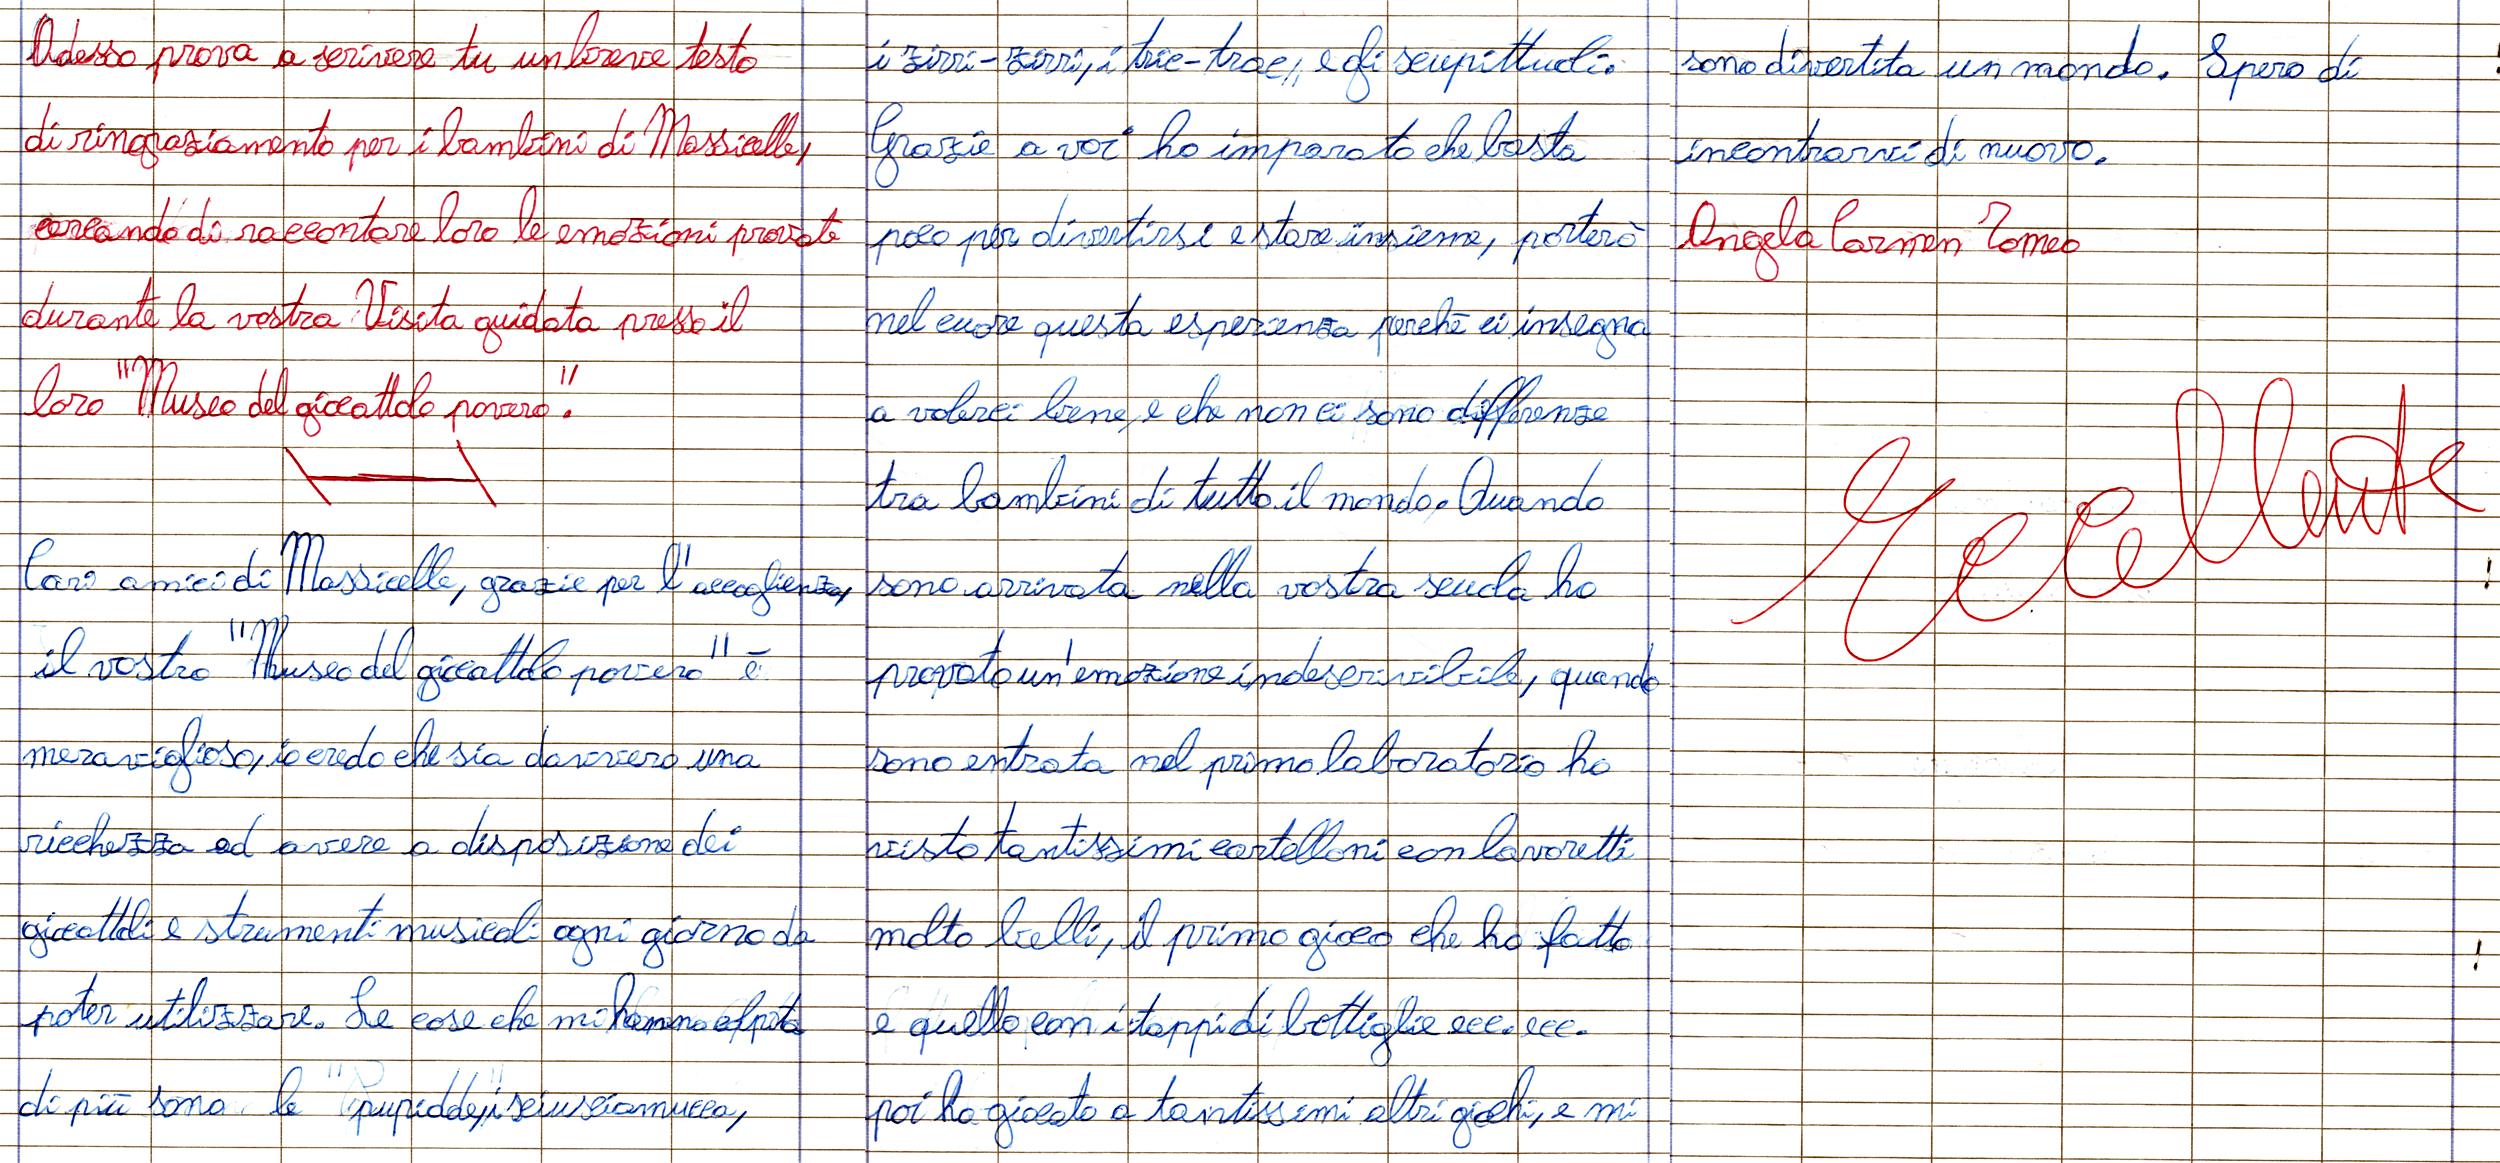 Adesso prova a scrivere tu un breve testo
di ringraziamento per i bambini di Massicelle,
cercando di raccontare loro le emozioni provate
durante la vostra Visita guidata presso il
loro "Museo del giocattolo povero".
Cari amici di Massicelle, grazie per l'accoglienza,
il vostro "Museo del giocattolo povero" è
meraviglioso, io credo che sia davvero una
ricchezza ad avere a disposizione dei
giocattoli e strumenti musicali ogni giorno da
poter utilizzare. Le cose che mi hanno colpito
di più sono le "pupidde", i sciusciamucca,
i zirri-zirri, i tric-trac, e gli scupittuoli.
Grazie a voi ho imparato che basta
poco per divertirsi e stare insieme, porterò
nel cuore questa esperienza perchè ci insegna
a volerci bene, e che non ci sono differenze
tra bambini di tutto il mondo. Quando
sono arrivata nella vostra scuola ho
provato un'emozione indescrivibile, quando
sono entrata nel primo laboratorio ho
visto tantissimi cartelloni con lavoretti
molto belli, il primo gioco che ho fatto
e quello con i tappi di bottiglie ecc. ecc.
poi ho giocato a tantissimi altri giochi, e mi
sono divertita un mondo. Spero di
incontrarvi di nuovo.
Angela Carmen Tomeo
Eccellente